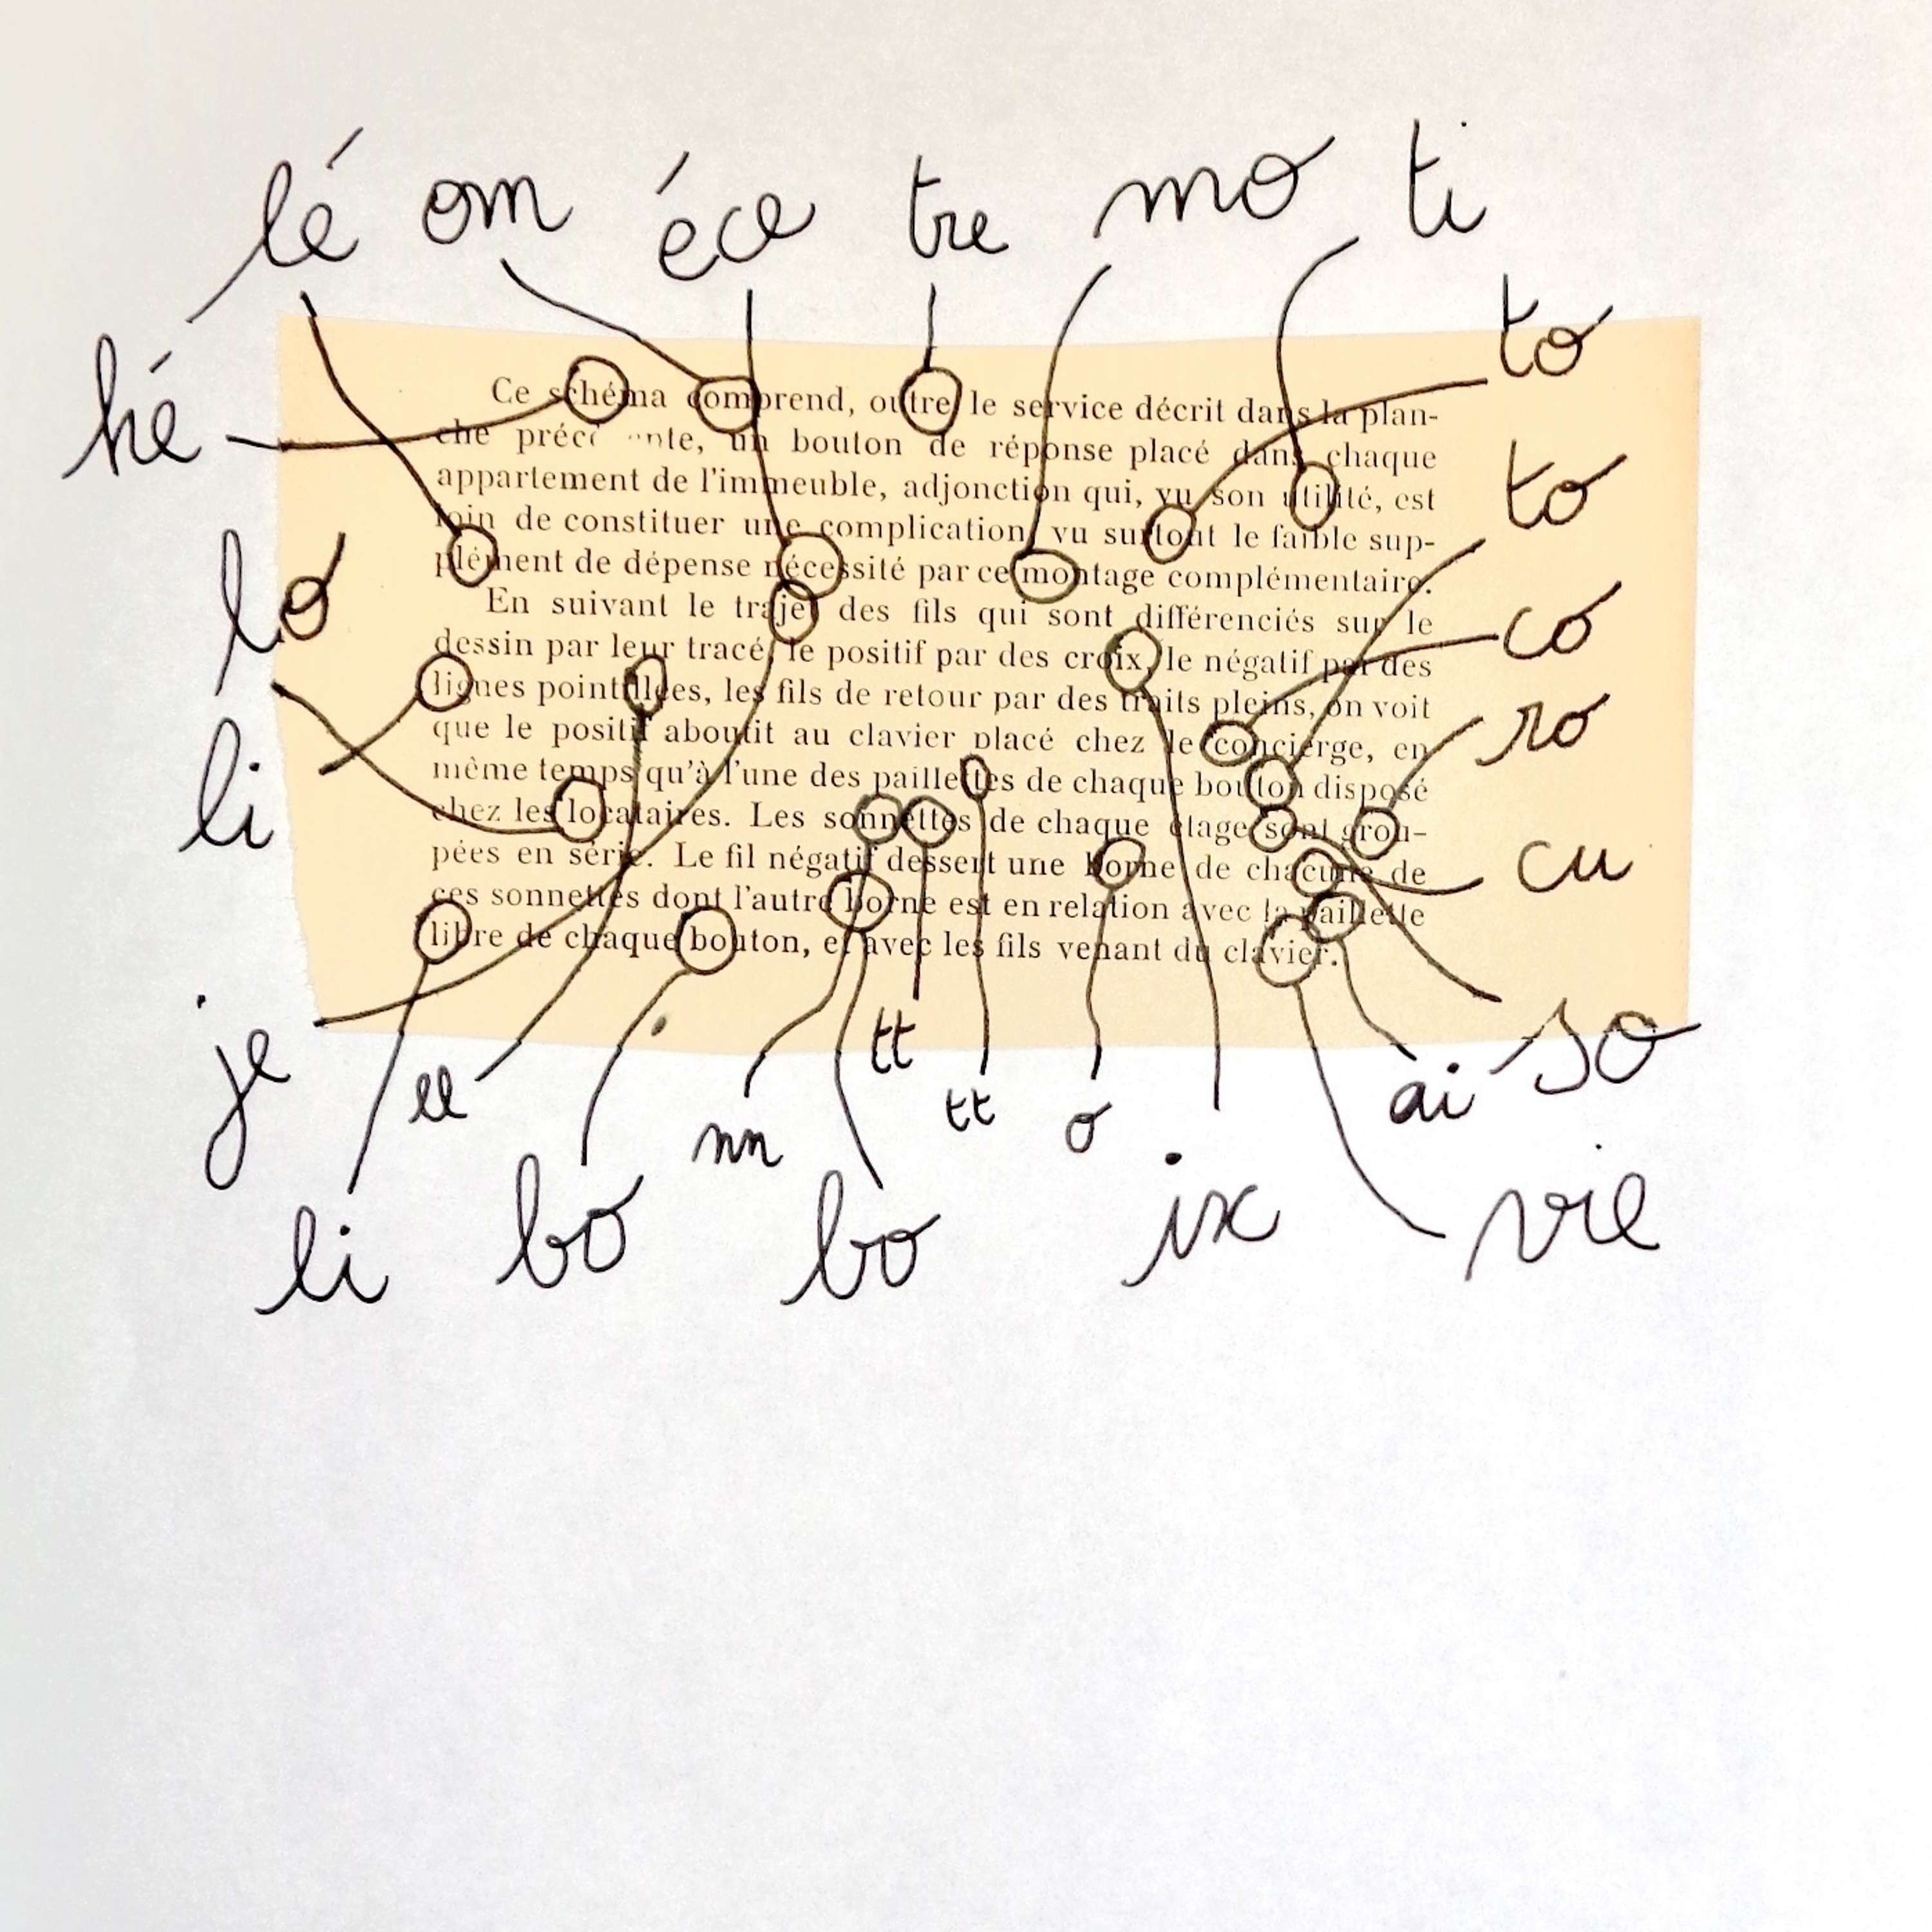 lé om éce tre mo ti
to
hé
Ce schéma comprend, outre le service décrit dans la plan-
che préc nte, un bouton de réponse placé dans chaque
appartement de l'immeuble, adjonction qui, vu son utilité, est
loin de constituer une complication vu surtout le faible sup-
plément de dépense nécessité par ce montage complémentaire.
En suivant le trajet des fils qui sont différenciés sur le
dessin par leur tracé, le positif par des croix, le négatif par des
lignes pointillées, les fils de retour par des traits pleins, on voit
que le positif aboutit au clavier placé chez le concierge, en
même temps qu'à l'une des paillettes de chaque bouton disposé
chez les locataires. Les sonnettes de chaque étage sont grou-
pées en série. Le fil négatif dessert une borne de chacune de
ces sonnettes dont l'autre borne est en relation avec la paillette
libre de chaque bouton, et avec les fils venant du clavier.
to
lo
co
ro
li
cu
je ll tt ai so
nn tt o
li bo bo ix vie